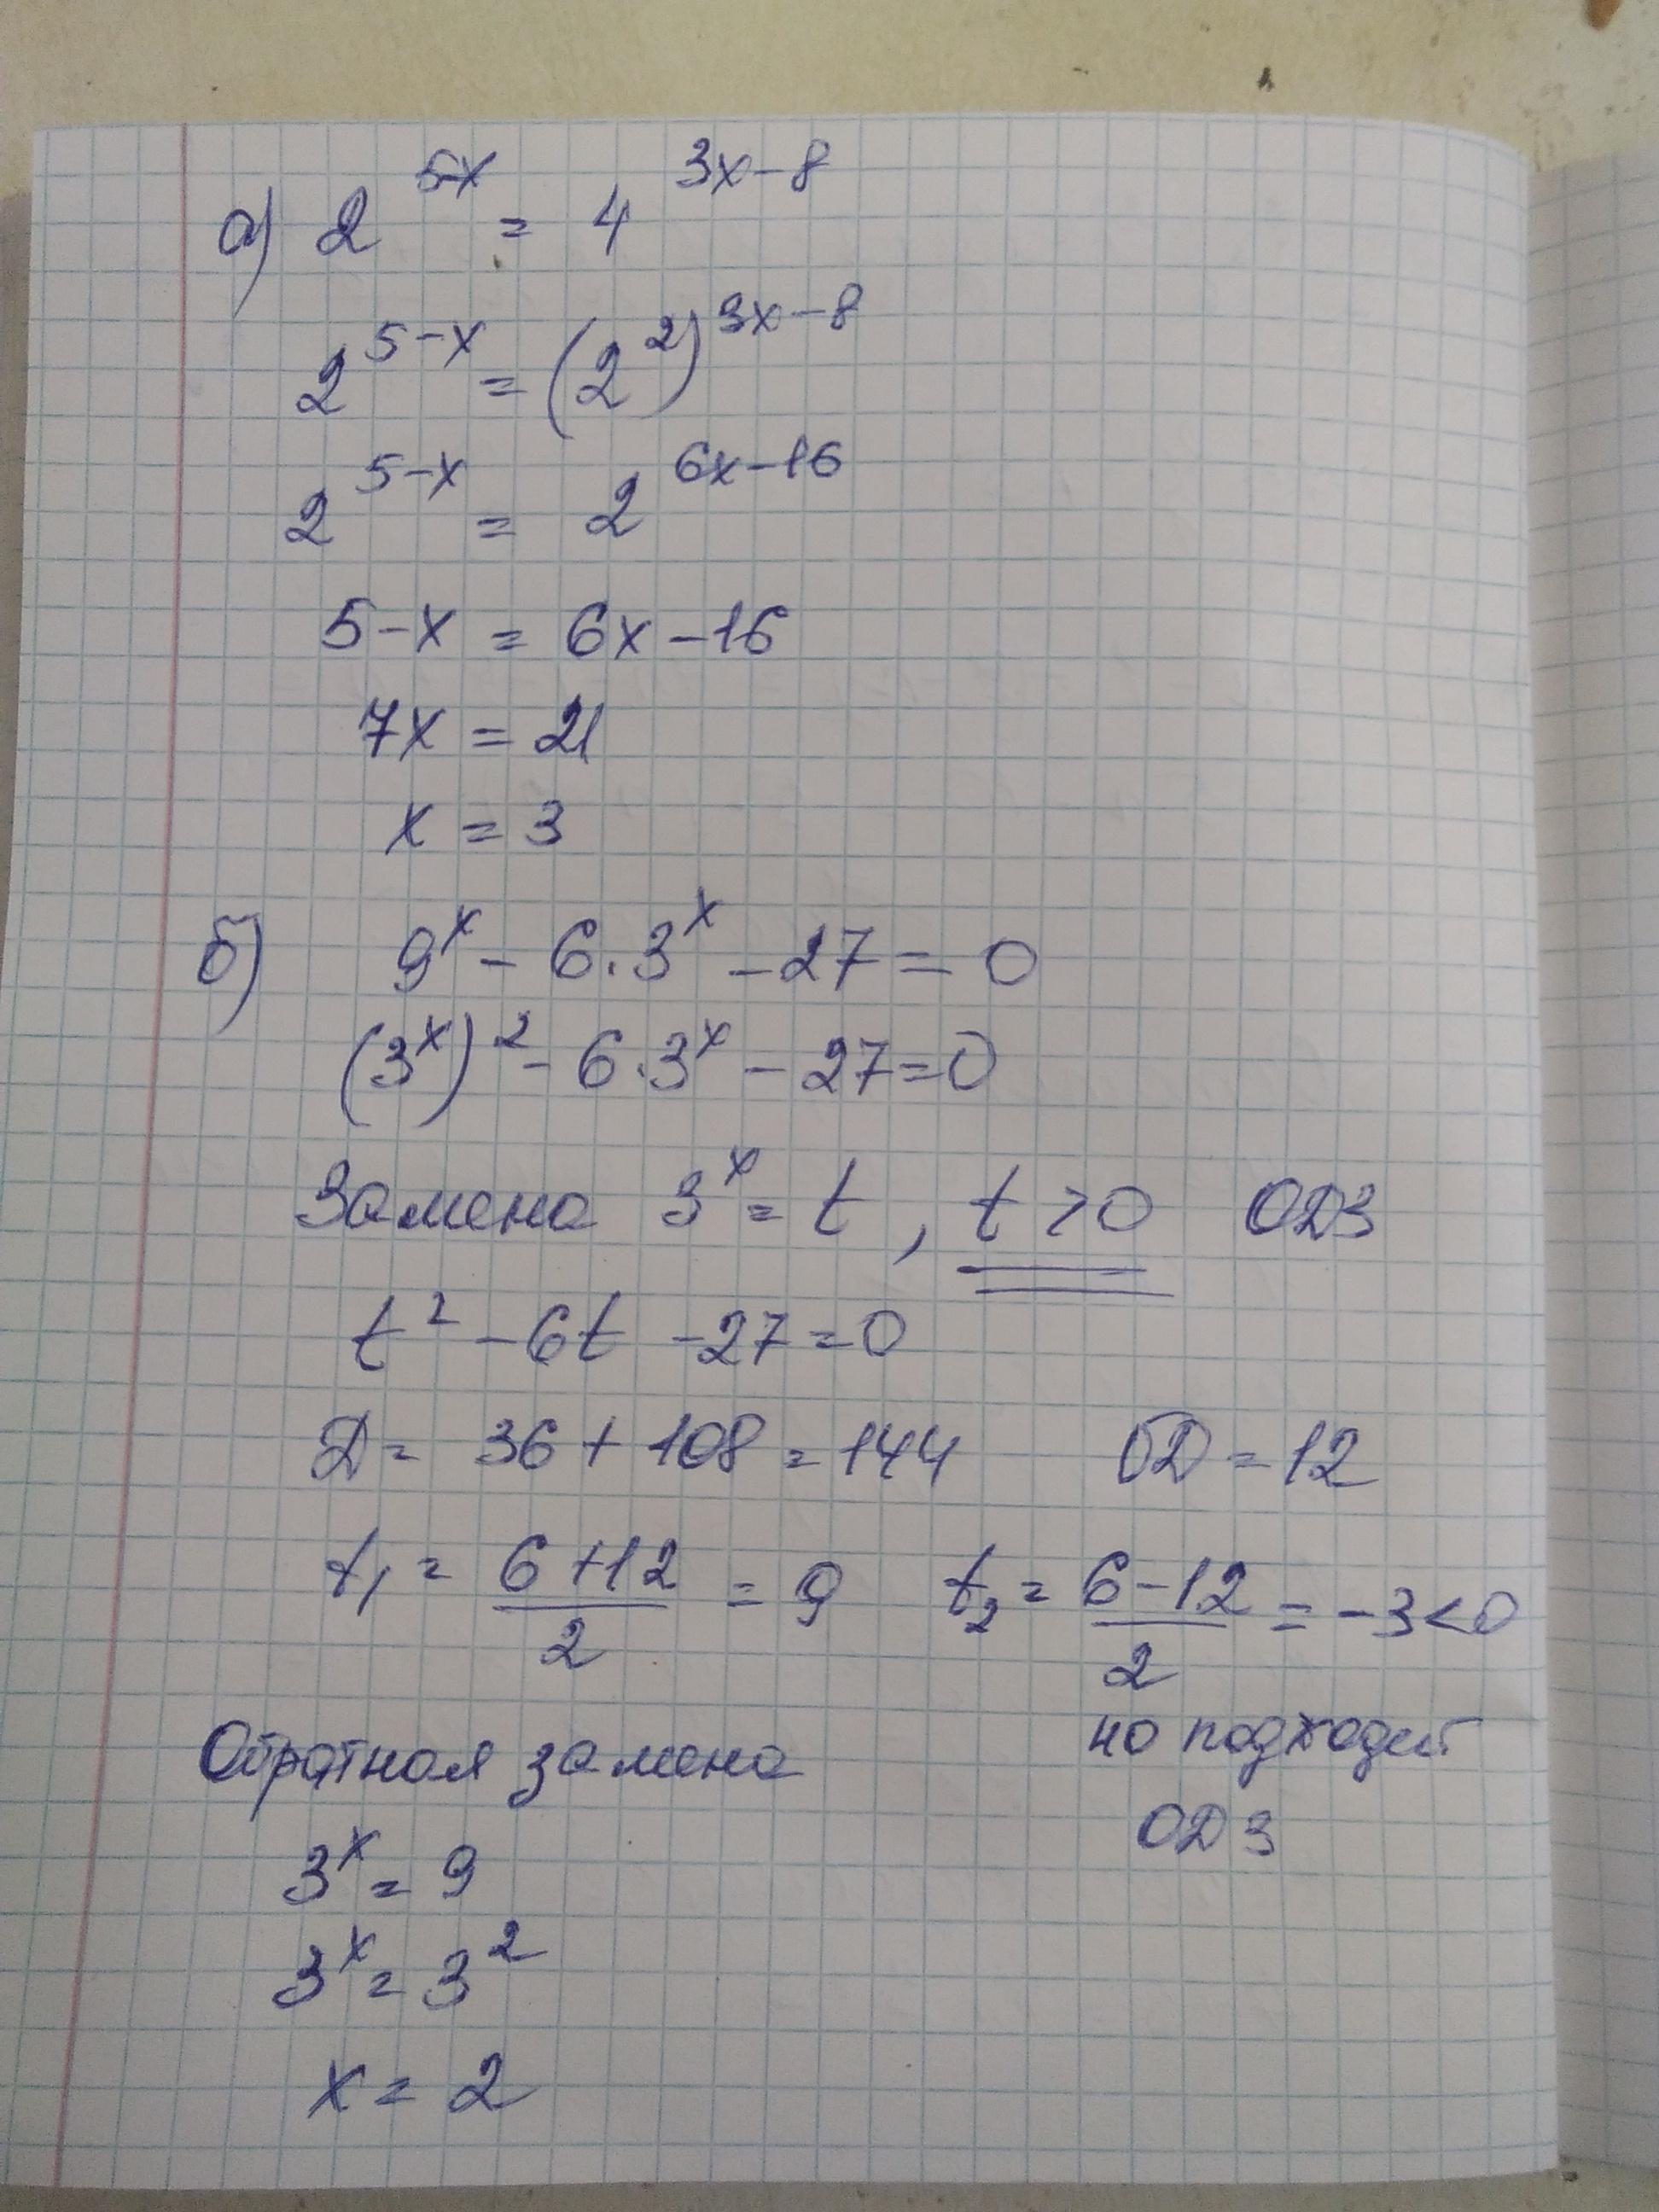 а) 2^(5-x) = 4^(3x-8)
2^(5-x) = (2^2)^(3x-8)
2^(5-x) = 2^(6x-16)
5-x = 6x-16
7x = 21
x = 3
б) 9^x - 6·3^x - 27 = 0
(3^x)^2 - 6·3^x - 27 = 0
Замена 3^x = t, t > 0 ОДЗ
t^2 - 6t - 27 = 0
D = 36 + 108 = 144 √D = 12
t₁ = (6+12)/2 = 9 t₂ = (6-12)/2 = -3 < 0
не подходит
ОДЗ
Обратная замена
3^x = 9
3^x = 3^2
x = 2